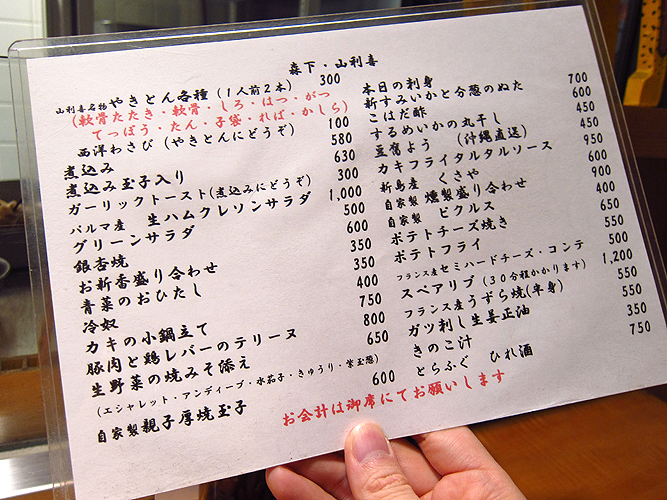 森下・山利喜
山利喜名物やきとん各種(1人前2本) 300
(軟骨たたき・軟骨・しろ・はつ・がつ
てっぽう・たん・子袋・れば・かしら)
西洋わさび(やきとんにどうぞ) 100
煮込み 580
煮込み玉子入り 630
ガーリックトースト(煮込みにどうぞ) 300
パルマ産 生ハムクレソンサラダ 1,000
グリーンサラダ 500
銀杏焼 600
お新香盛り合わせ 350
青菜のおひたし 350
冷奴 400
カキの小鍋立て 750
豚肉と鶏レバーのテリーヌ 800
生野菜の焼みそ添え 650
(エシャレット・アンディーブ・水茄子・きゅうり・紫玉葱)
自家製親子厚焼玉子 600
本日の刺身 700
新すみいかと分葱のぬた 600
こはだ酢 450
するめいかの丸干し 450
豆腐よう (沖縄直送) 450
カキフライタルタルソース 950
新島産 くさや 600
自家製 燻製盛り合わせ 900
自家製 ピクルス 400
ポテトチーズ焼き 650
ポテトフライ 550
フランス産セミハードチーズ・コンテ 500
スペアリブ(30分程かかります) 1,200
フランス産うずら焼(半身) 550
ガツ刺し生姜正油 550
きのこ汁 350
とらふぐ ひれ酒 750
お会計は御席にてお願いします